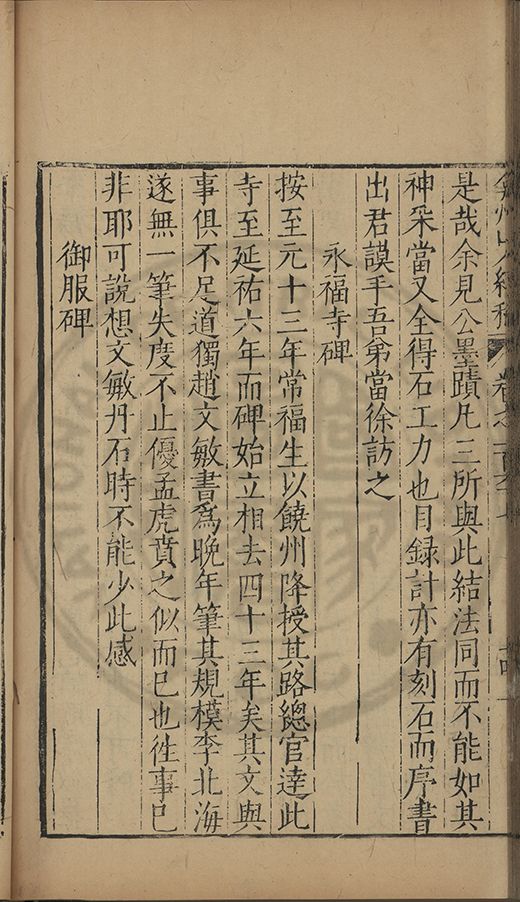 是哉余見公墨蹟凡三所與此結法同而不能如其
神采當又全得石工力也目録計亦有刻石而序書
出君謨手吾弟當徐訪之
永福寺碑
按至元十三年常福生以饒州降授其路總官達此
寺至延祐六年而碑始立相去四十三年矣其文與
事俱不足道獨趙文敏書爲晚年筆其規模李北海
遂無一筆失度不止優孟虎賁之似而已也徃事已
非耶可說想文敏丹石時不能少此感
御服碑